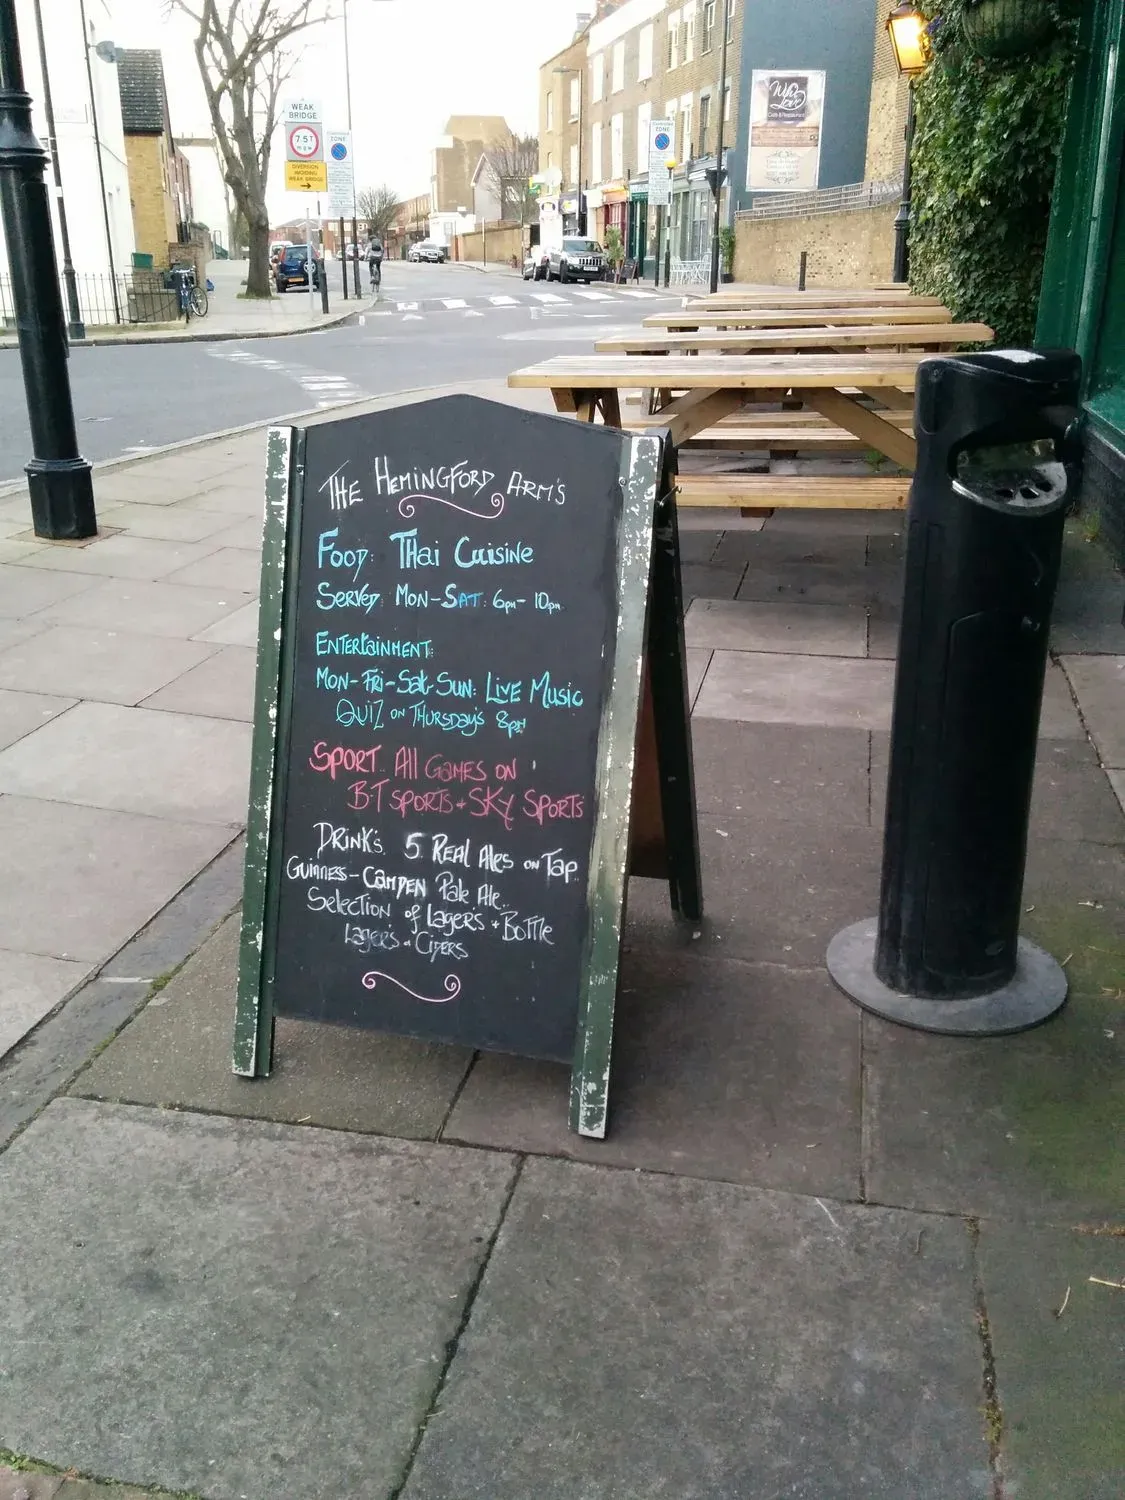 WEAK
BRIDGE
7.5T
mgw
DIVERSION
AVOIDING
WEAK BRIDGE
ZONE
ZONE
Wild
Love
THE HEMINGFORD ARM'S
FOOD: THai CUISINE
SERVED: MON-SAT: 6pm - 10pm
ENTERtAiNMENT:
MON-FRi-Sat-SUN: LiVE MUSiC
QUiZ ON THURSDAY'S 8pm
SPORT. All GAMES ON
B.T SPORTS + SKY SPORTS
DRiNK'S. 5 REAL AlES ON TAP.
GUiNNESS - CAMDEN Pale Ale.
SElECTiON of lAGER'S + BoTTle
lAGER'S + CiDERS